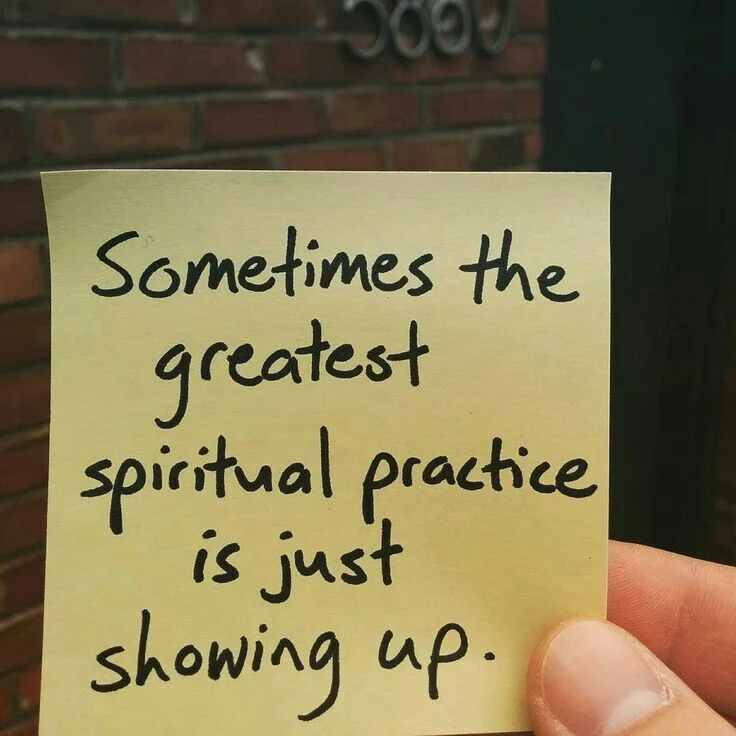 5860
Sometimes the
greatest
spiritual practice
is just
showing up.